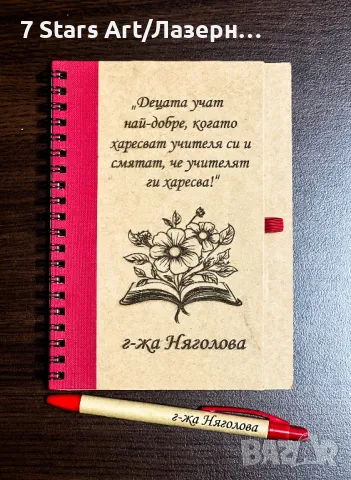 7 Stars Art/Лазерн...
„Децата учат
най-добре, когато
харесват учителя си и
смятат, че учителят
ги харесва!“
г-жа Няголова
г-жа Няголова
BAZAR